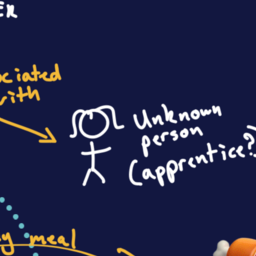 ociated
with
Unknown
person
(apprentice?)
meal